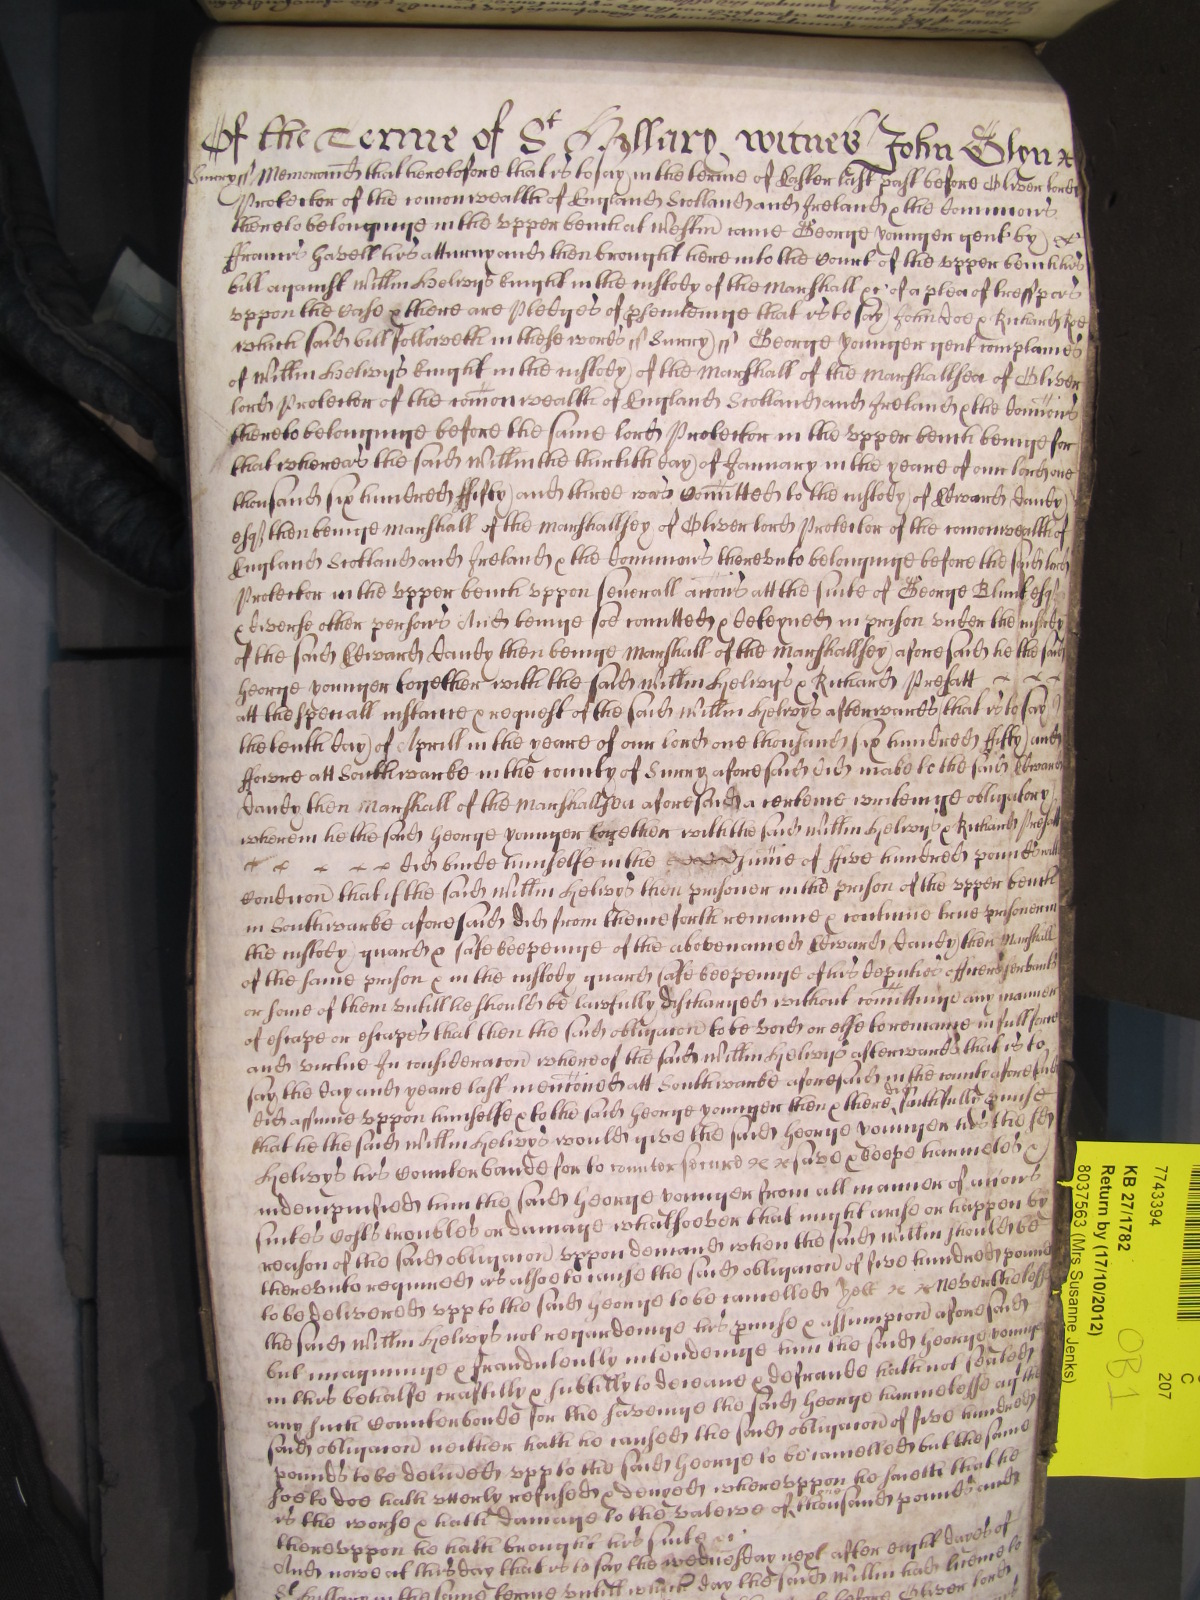 Of the Terme of St Hyllary witnes John Glyn
Surry ss Memorand that heretofore that is to say in the terme of Easter last past before Oliver lord
Protector of the comonwealth of England Scotland and Ireland & the dominions
thereto belonginge in the upper bench at Westm came George younger gent by
Francis Havell his atturny and then brought here into the Court of the upper bench his
bill against Willm Helwys knight in the custody of the Marshall &c of a plea of tresspas
uppon the Case & there are Pledges of prosecutinge that is to say John Doe & Richard Roe
which said bill followeth in these words ss Surry ss George younger gent complaines
of Willm Helwys knight in the custody of the Marshall of the Marshallsea of Oliver
lord Protector of the comonwealth of England Scotland and Ireland & the dominions
thereto belonginge before the same lord Protector in the upper bench beinge for
that whereas the said Willm the thirtith day of January in the yeare of our lord one
thousand six hundred ffifty and three was Comitted to the custody of Edward Dandy
esqr then beinge Marshall of the Marshallsey of Oliver lord Protector of the comonwealth of
England Scotland and Ireland & the dominions thereunto belonginge before the said lord
Protector in the upper bench uppon severall accons att the suite of George Blunt esqr
& diverse other persons And beinge soe comitted & deteyned in prison under the custody
of the said Edward Dandy then beinge Marshall of the Marshallsey aforesaid he the said
George younger together with the said Willm Helwys & Richard Presatt
att the speciall instance & request of the said Willm Helwys afterwards that is to say
the tenth day of Aprill in the yeare of our lord one thousand six hundred ffifty and
ffowre att Southwarke in the county of Surry aforesaid did make to the said Edward
Dandy then Marshall of the Marshallsea aforesaid a certeine writeinge obligatory
wherein he the said George younger together with the said Willm Helwys & Richard Presatt
did binde himselfe in the sume of ffive hundred pounds with
Condicon that if the said Willm Helwys then prisoner in the prison of the upper bench
in Southwarke aforesaid did from thence forth remaine & continue true prisoner in
the custody guard & safe keepeinge of the abovenamed Edward Dandy then Marshall
of the same prison & in the custody guard safe keepeinge of his deputies officers servants
or some of them untill he should be lawfully discharged without comittinge any manner
of escape or escapes that then the said obligacon to be void or else to remaine in full force
and virtue In consideracon whereof the said Willm Helwys afterwards that is to
say the day and yeare last menconed att Southwarke aforesaid in the county aforesaid
did assume uppon himselfe & to the said George younger then & there did faithfully pmise
that he the said Willm Helwys would give the said George younger his the sd
Helwys his Counterbande for to counter secure save & keepe harmeles &
indempnified him the said George younger from all manner of accons
suites Costs troubles or damage whatsoever that might arise or happen by
reason of the said obligacon uppon demand when the said Willm should be
thereunto required as alsoe to cause the said obligacon of five hundred pounds
to be delivered upp to the said George to be cancelled Yett neverthelesse
the said Willm Helwys not regardeinge his pmise & assumpcon aforesaid
but imagininge & fraudulently intendeinge him the said George younger
in this behalfe craftily & subtilly to deceave & defraude hath not sealed
any such Counterbonde for the saveinge the said George harmelesse agt the
said obligacon neither hath he caused the said obligacon of five hundred
pounds to be delived upp to the said George to be cancelled but the same
soe to doe hath utterly refused & denyed whereuppon he saieth that he
is the worse & hath damage to the valewe of thousand pounds and
thereuppon he hath brought his suite &c
And nowe at this day that is to say the wednesday next after eight dayes of
St Hillary in the same terme untill which day the said Willm had licence to
before Oliver lord
7743394
KB 27/1782
Return by (17/10/2012)
8037563 (Mrs Susanne Jenks)
C
207
OB1